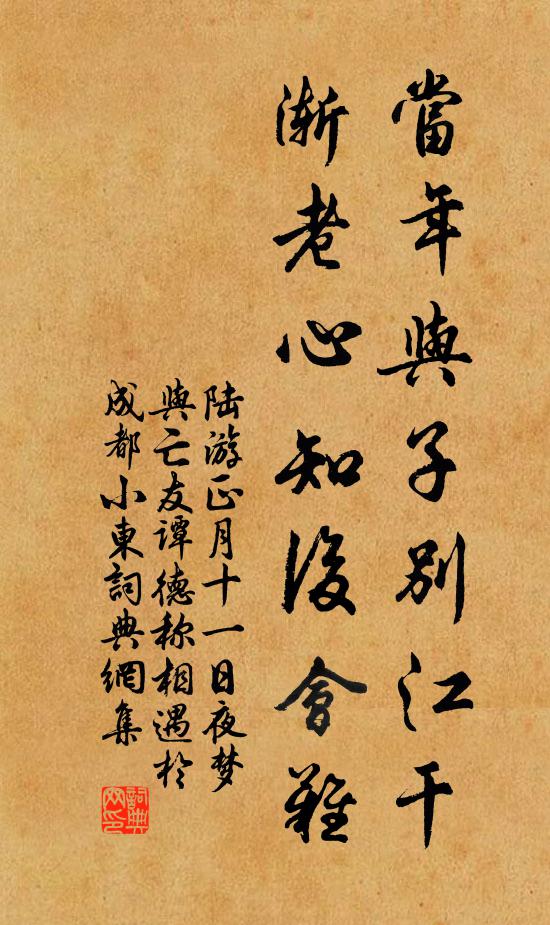 當年與子別江干
漸老心知後會難
陆游正月十一日夜梦
與亡友譚德称相遇於
成都小東詞典網集
詞典
网印